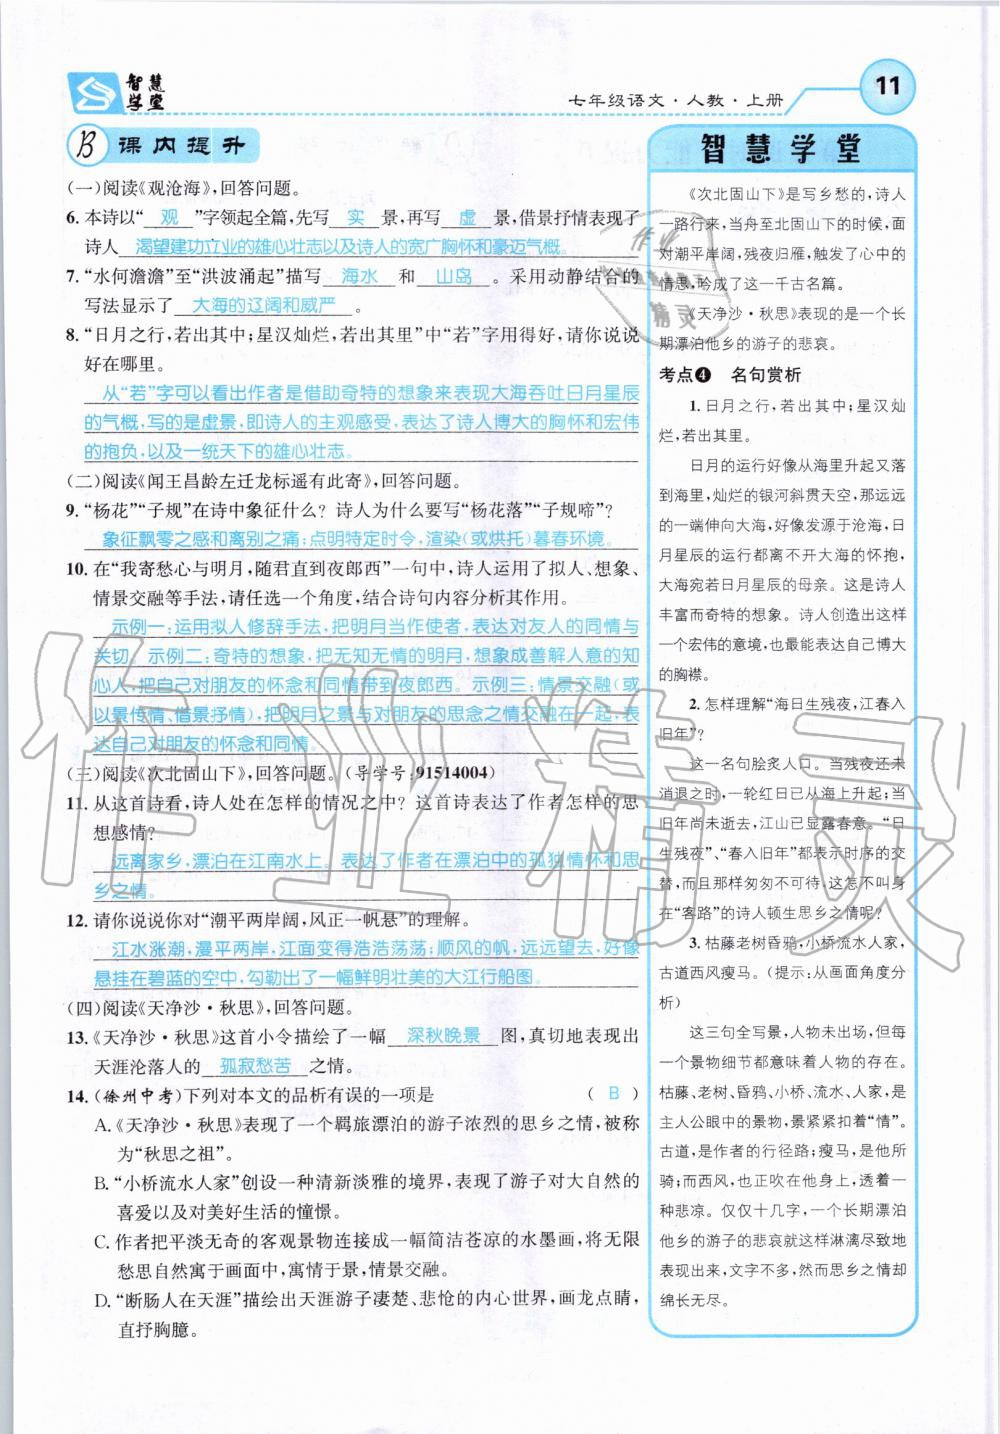 智慧学堂
七年级语文·人教·上册
11
B 课内提升
(一)阅读《观沧海》,回答问题。
6. 本诗以“ 观 ”字领起全篇,先写 实 景,再写 虚 景,借景抒情表现了
诗人 渴望建功立业的雄心壮志以及诗人的宽广胸怀和豪迈气概。
7. “水何澹澹”至“洪波涌起”描写 海水 和 山岛 。采用动静结合的
写法显示了 大海的辽阔和威严 。
8. “日月之行,若出其中;星汉灿烂,若出其里”中“若”字用得好,请你说说
好在哪里。
从“若”字可以看出作者是借助奇特的想象来表现大海吞吐日月星辰
的气概,写的是虚景,即诗人的主观感受,表达了诗人博大的胸怀和宏伟
的抱负,以及一统天下的雄心壮志。
(二)阅读《闻王昌龄左迁龙标遥有此寄》,回答问题。
9. “杨花”“子规”在诗中象征什么?诗人为什么要写“杨花落”“子规啼”?
象征飘零之感和离别之痛;点明特定时令,渲染(或烘托)暮春环境。
10. 在“我寄愁心与明月,随君直到夜郎西”一句中,诗人运用了拟人、想象、
情景交融等手法,请任选一个角度,结合诗句内容分析其作用。
示例一:运用拟人修辞手法,把明月当作使者,表达对友人的同情与
关切。示例二:奇特的想象,把无知无情的明月,想象成善解人意的知
心人,把自己对朋友的怀念和同情带到夜郎西。示例三:情景交融(或
以景传情、借景抒情),把明月之景与对朋友的思念之情交融在一起,表
达自己对朋友的怀念和同情。
(三)阅读《次北固山下》,回答问题。(导学号:91514004)
11. 从这首诗看,诗人处在怎样的情况之中?这首诗表达了作者怎样的思
想感情?
远离家乡,漂泊在江南水上。表达了作者在漂泊中的孤独情怀和思
乡之情。
12. 请你说说你对“潮平两岸阔,风正一帆悬”的理解。
江水涨潮,漫平两岸,江面变得浩浩荡荡;顺风的帆,远远望去,好像
悬挂在碧蓝的空中,勾勒出了一幅鲜明壮美的大江行船图。
(四)阅读《天净沙·秋思》,回答问题。
13. 《天净沙·秋思》这首小令描绘了一幅 深秋晚景 图,真切地表现出
天涯沦落人的 孤寂愁苦 之情。
14. (徐州中考)下列对本文的品析有误的一项是 ( B )
A. 《天净沙·秋思》表现了一个羁旅漂泊的游子浓烈的思乡之情,被称
为“秋思之祖”。
B. “小桥流水人家”创设一种清新淡雅的境界,表现了游子对大自然的
喜爱以及对美好生活的憧憬。
C. 作者把平淡无奇的客观景物连接成一幅简洁苍凉的水墨画,将无限
愁思自然寓于画面中,寓情于景,情景交融。
D. “断肠人在天涯”描绘出天涯游子凄楚、悲怆的内心世界,画龙点睛,
直抒胸臆。
智慧学堂
《次北固山下》是写乡愁的,诗人
一路行来,当舟至北固山下的时候,面
对潮平岸阔,残夜归雁,触发了心中的
情思,吟成了这一千古名篇。
《天净沙·秋思》表现的是一个长
期漂泊他乡的游子的悲哀。
考点❹ 名句赏析
1. 日月之行,若出其中;星汉灿
烂,若出其里。
日月的运行好像从海里升起又落
到海里,灿烂的银河斜贯天空,那远远
的一端伸向大海,好像发源于沧海,日
月星辰的运行都离不开大海的怀抱,
大海宛若日月星辰的母亲。这是诗人
丰富而奇特的想象。诗人创造出这样
一个宏伟的意境,也最能表达自己博大
的胸襟。
2. 怎样理解“海日生残夜,江春入
旧年”?
这一名句脍炙人口。当残夜还未
消退之时,一轮红日已从海上升起;当
旧年尚未逝去,江山已显露春意。“日
生残夜”、“春入旧年”都表示时序的交
替,而且那样匆匆不可待,这怎不叫身
在“客路”的诗人顿生思乡之情呢?
3. 枯藤老树昏鸦,小桥流水人家,
古道西风瘦马。(提示:从画面角度分
析)
这三句全写景,人物未出场,但每
一个景物细节都意味着人物的存在。
枯藤、老树、昏鸦、小桥、流水、人家,是
主人公眼中的景物,景紧紧扣着“情”。
古道,是作者的行径路;瘦马,是他所
骑;而西风,也正吹在他身上,透着一
种悲凉。仅仅十几字,一个长期漂泊
他乡的游子的悲哀就这样淋漓尽致地
表现出来,文字不多,然而思乡之情却
绵长无尽。
作业精灵